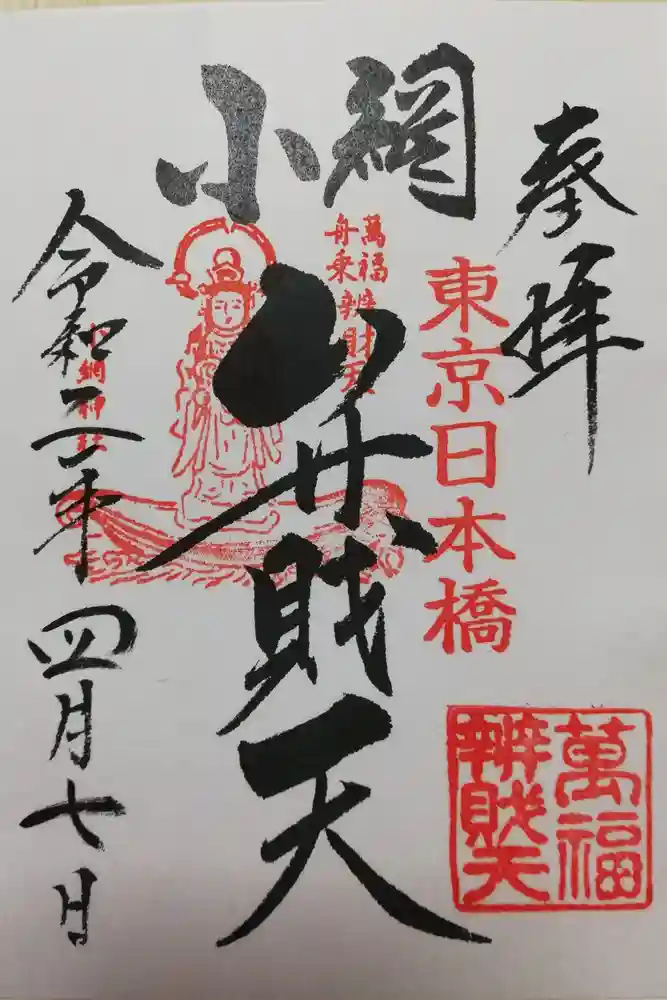 奉拝
東京日本橋
小網
萬福
舟乗辨財天
弁財天
令和二年四月七日
網神社
萬福
辨財天